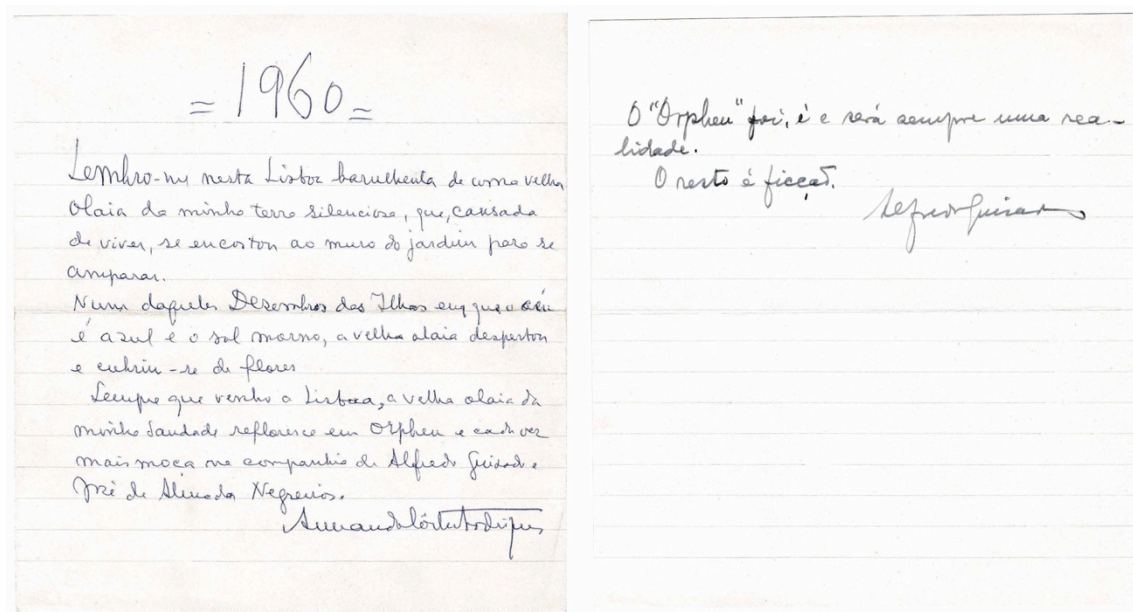 = 1960 =
Lembro-me nesta Lisboa barulhenta de uma velha
olaia da minha terra silenciosa, que, cansada
de viver, se encostou ao muro do jardim para se
amparar.
Num daqueles Dezembros das Ilhas em que o céu
é azul e o sol morno, a velha olaia despertou
e cubriu-se de flores
Sempre que venho a Lisboa, a velha olaia da
minha Saudade refloresce em Orpheu e cada vez
mais moça na companhia de Alfredo Guisado e
José de Almada Negreiros.
Armando Côrtes Rodrigues
O "Orpheu" foi, é e será sempre uma rea-
lidade.
O resto é ficção.
Alfredo Guisado